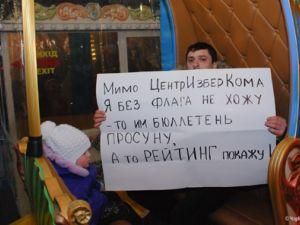 ВИХІД
EXIT
Мимо ЦентрИзберКома
Я БЕЗ ФЛАГА НЕ ХОЖУ
-ТО ИМ БЮЛЛЕТЕНЬ
ПРОСУНУ,
А то РЕЙТИНГ покажу!